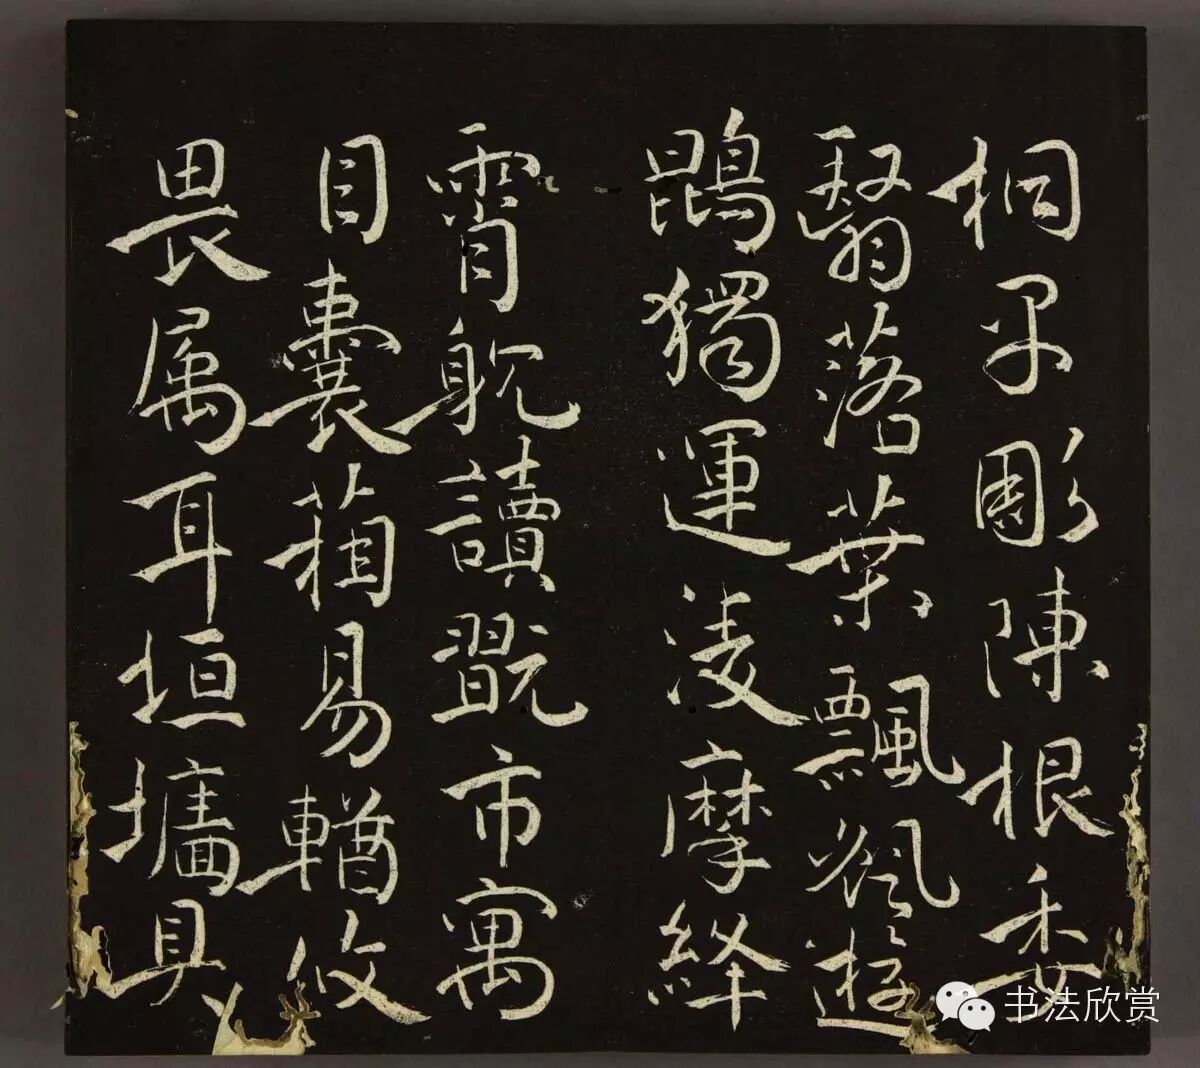 桐早彫陳根委
翳落葉飄颻遊
鵾獨運凌摩絳
霄躭讀翫市寓
目囊箱易輶攸
畏属耳垣墻具
书法欣赏